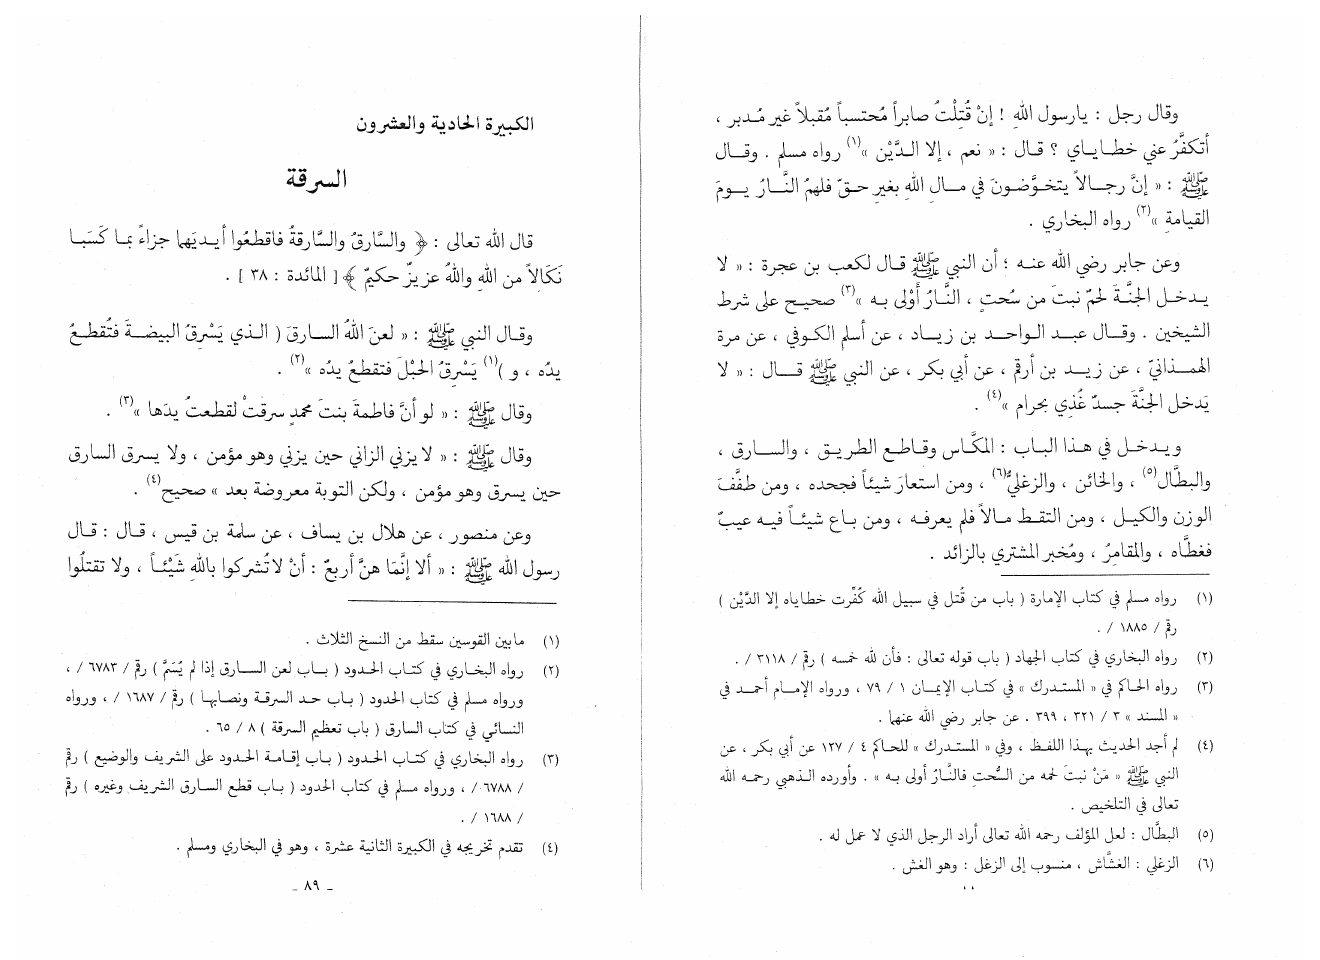 وقال رجل : يارسول اللهِ ! إنْ قُتِلْتُ صابراً مُحتسباً مُقبلاً غير مُدبر ،
أتكفَّرُ عني خطاياي ؟ قال : « نعم ، إلا الدَّيْن »(١) رواه مسلم . وقال
ﷺ : « إنَّ رجالاً يتخوَّضونَ في مال اللهِ بغير حقّ فلهمُ النَّارُ يومَ
القيامةِ »(٢) رواه البخاري .
وعن جابر رضي الله عنه ؛ أن النبي ﷺ قال لكعب بن عجرة : « لا
يدخل الجنَّةَ لحمٌ نبتَ من سُحتٍ ، النَّارُ أَوْلى به »(٣) صحيح على شرط
الشيخين . وقال عبد الواحد بن زياد ، عن أسلم الكوفي ، عن مرة
الهمذانيّ ، عن زيد بن أرقم ، عن أبي بكر ، عن النبي ﷺ قال : « لا
يَدخل الجنَّةَ جسدٌ غُذي بحرام »(٤) .
ويدخل في هذا الباب : المكَّاس وقاطع الطريق ، والسارق ،
والبطَّال(٥) ، والخائن ، والزغليُّ(٦) ، ومن استعارَ شيئاً فجحده ، ومن طفَّفَ
الوزن والكيل ، ومن التقط مالاً فلم يعرفه ، ومن باع شيئاً فيه عيبٌ
فغطَّاه ، والمقامرُ ، ومُخبر المشتري بالزائد .
(١) رواه مسلم في كتاب الإمارة ( باب من قُتل في سبيل الله كُفِّرت خطاياه إلا الدَّيْن )
رقم / ١٨٨٥ / .
(٢) رواه البخاري في كتاب الجهاد ( باب قوله تعالى : فأن لله خمسه ) رقم / ٣١١٨ / .
(٣) رواه الحاكم في « المستدرك » في كتاب الإيمان ١ / ٧٩ ، ورواه الإمام أحمد في
« المسند » ٣ / ٣٢١ ، ٣٩٩ . عن جابر رضي الله عنهما .
(٤) لم أجد الحديث بهذا اللفظ ، وفي « المستدرك » للحاكم ٤ / ١٢٧ عن أبي بكر ، عن
النبي ﷺ « مَنْ نبتَ لحمه من السُّحتِ فالنَّارُ أولى به » . وأورده الذهبي رحمه الله
تعالى في التلخيص .
(٥) البطَّال : لعل المؤلف رحمه الله تعالى أراد الرجل الذي لا عمل له .
(٦) الزغلي : الغشَّاش ، منسوب إلى الزغل : وهو الغش .
الكبيرة الحادية والعشرون
السرقة
قال الله تعالى : ﴿ والسَّارقُ والسَّارقةُ فاقطعُوا أيديَهما جزاءً بما كَسَبا
نَكَالاً من اللهِ واللهُ عزيزٌ حكيمٌ ﴾ [ المائدة : ٣٨ ] .
وقال النبي ﷺ : « لعنَ اللهُ السارقَ ( الذي يَسْرِقُ البيضةَ فتُقطعُ
يدُه ، و )(١) يَسْرِقُ الحَبْلَ فتقطعُ يدُه »(٢) .
وقال ﷺ : « لو أنَّ فاطمةَ بنتَ محمدٍ سرقتْ لقطعتُ يدَها »(٣) .
وقال ﷺ : « لا يزني الزاني حين يزني وهو مؤمن ، ولا يسرق السارق
حين يسرق وهو مؤمن ، ولكن التوبة معروضة بعد » صحيح(٤) .
وعن منصور ، عن هلال بن يساف ، عن سلمة بن قيس ، قال : قال
رسول الله ﷺ : « ألا إنَّمَا هنَّ أربعٌ : أنْ لا تُشركوا باللهِ شَيْئاً ، ولا تقتلُوا
(١) مابين القوسين سقط من النسخ الثلاث .
(٢) رواه البخاري في كتاب الحدود ( باب لعن السارق إذا لم يُسَمَّ ) رقم / ٦٧٨٣ / ،
ورواه مسلم في كتاب الحدود ( باب حد السرقة ونصابها ) رقم / ١٦٨٧ / ، ورواه
النسائي في كتاب السارق ( باب تعظيم السرقة ) ٨ / ٦٥ .
(٣) رواه البخاري في كتاب الحدود ( باب إقامة الحدود على الشريف والوضيع ) رقم
/ ٦٧٨٨ / ، ورواه مسلم في كتاب الحدود ( باب قطع السارق الشريف وغيره ) رقم
/ ١٦٨٨ / .
(٤) تقدم تخريجه في الكبيرة الثانية عشرة ، وهو في البخاري ومسلم .
- ٨٩ -